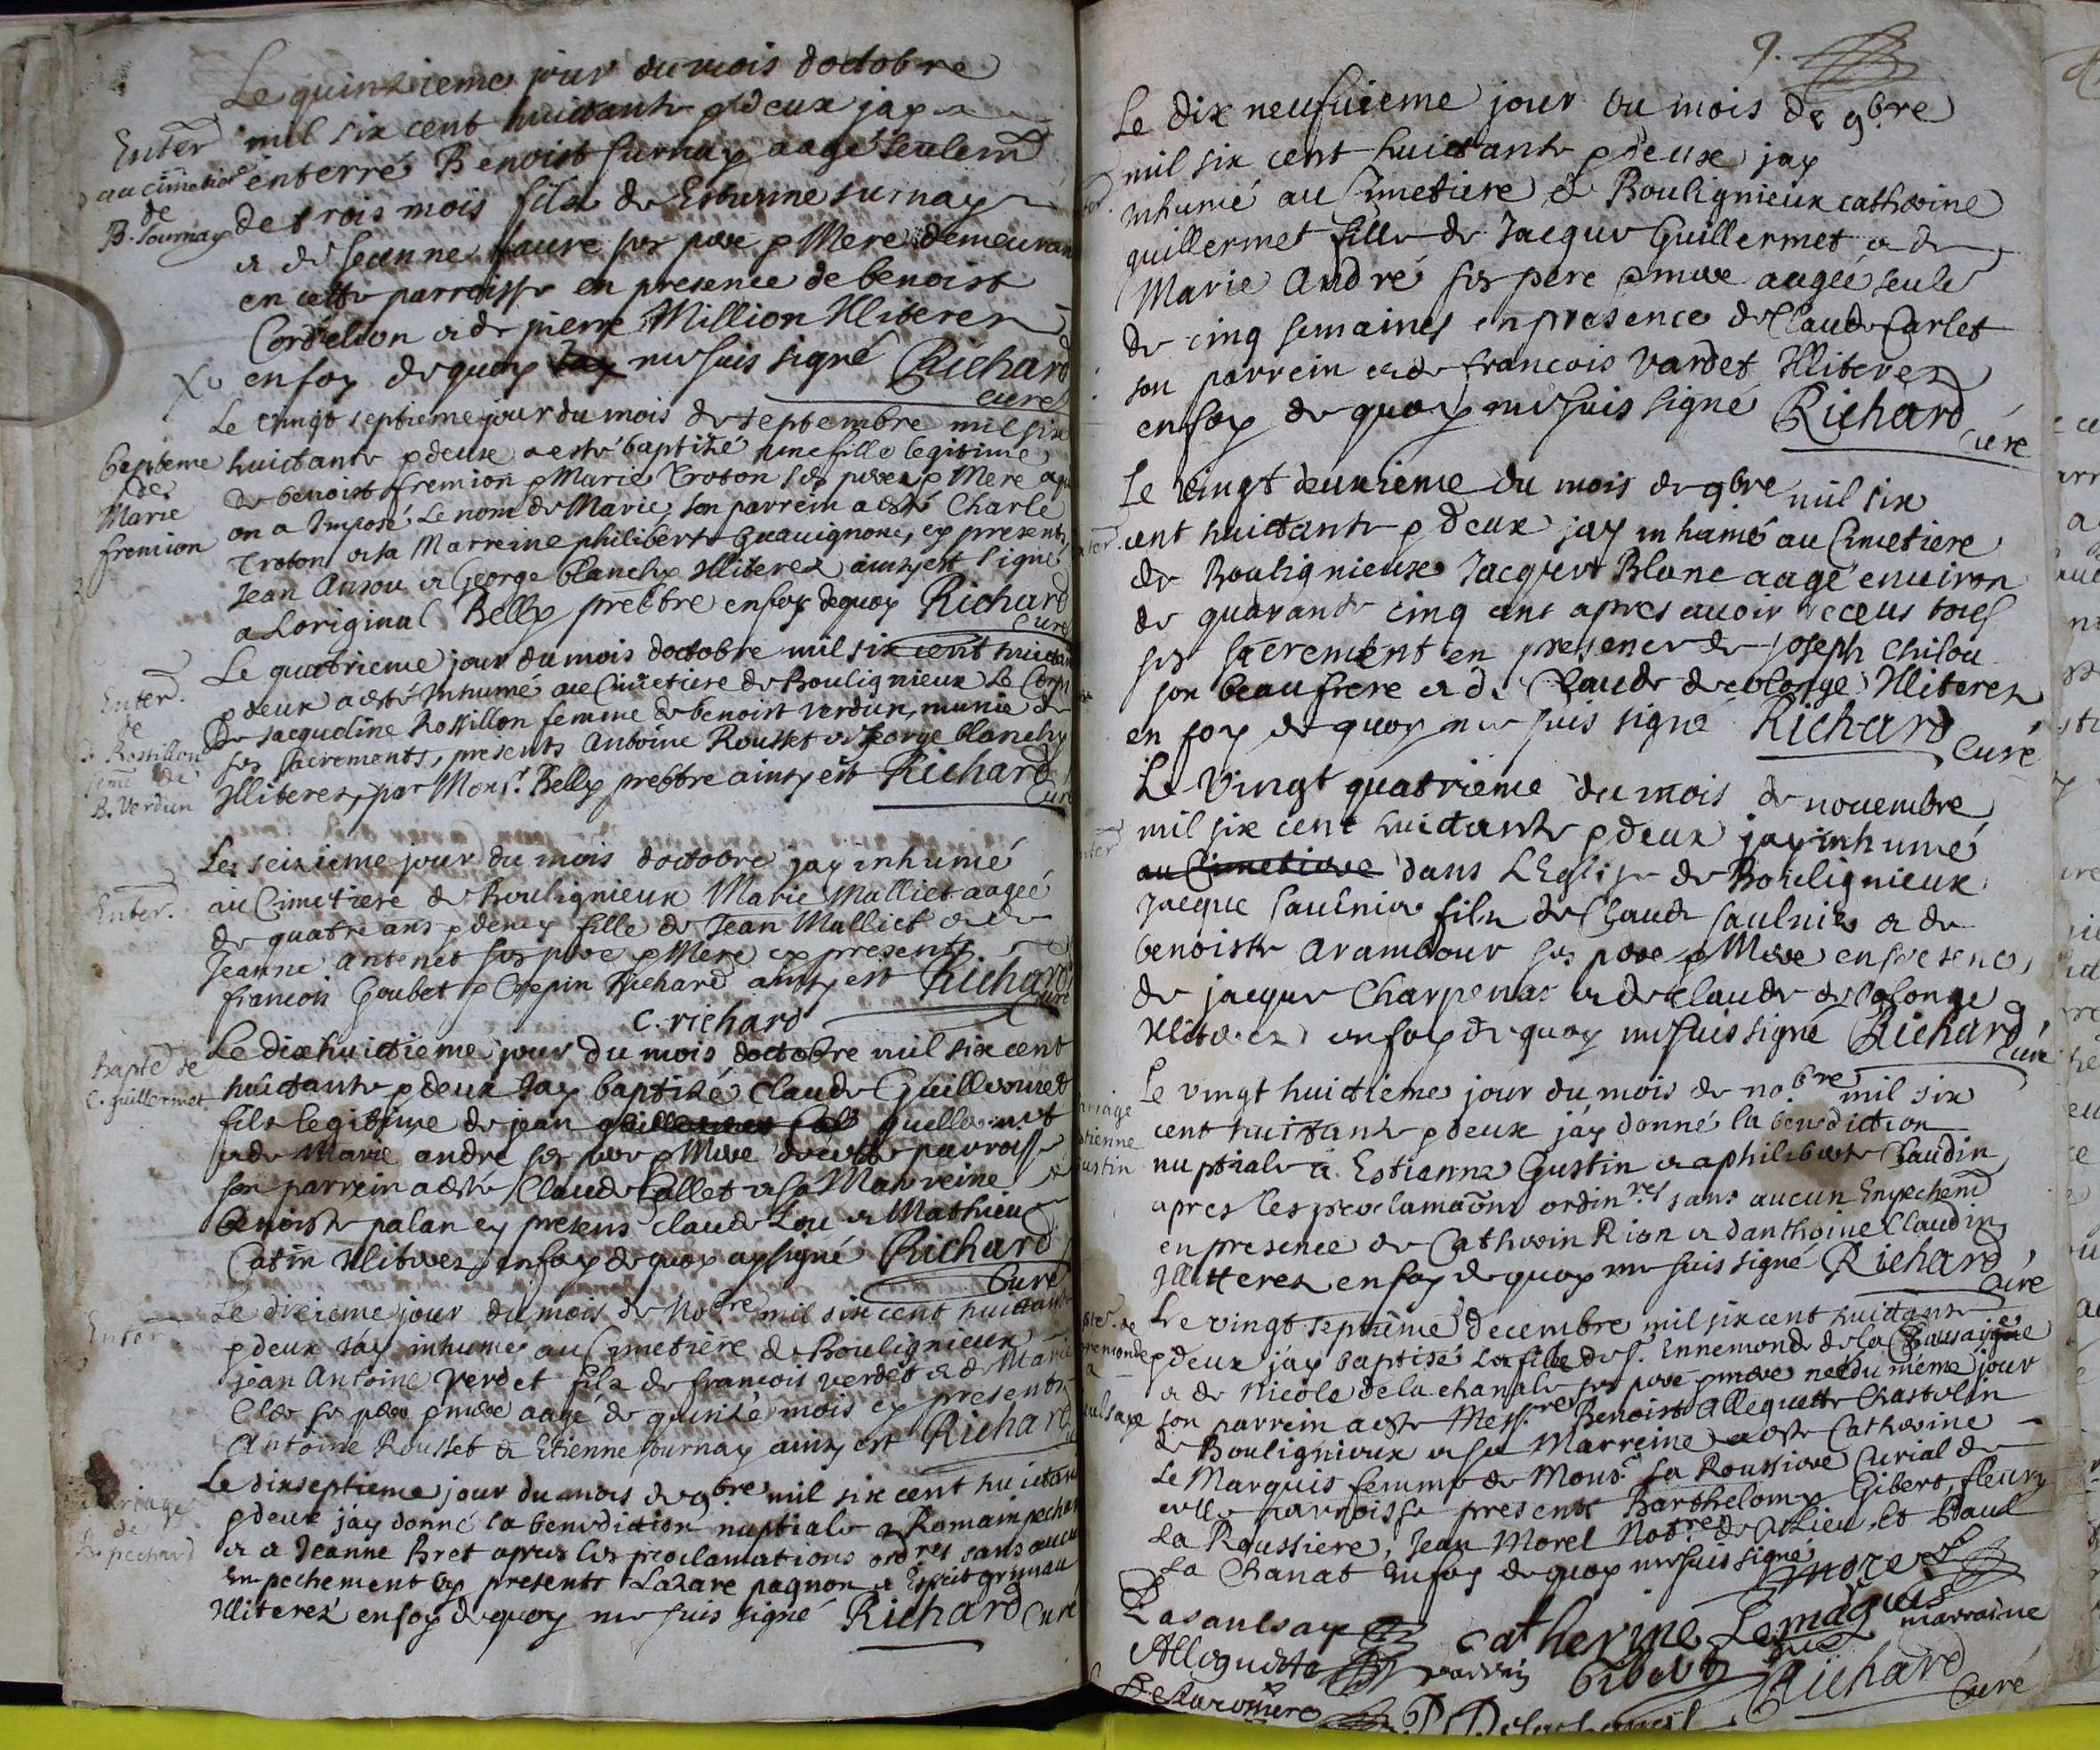 Le quinzieme jour du mois doctobre
mil six cent huictante & deux jay
enterré Benoist surnay aagé seulem
de trois mois fils de Estienne surnay
& de Jeanne faure ses pere & Mere demeuran
en cette parroisse en presence de benoist
Cordelion & de pierre Million Illiterez
en foy de quoy me suis signé Richard
curé
Enter
au cimetiere
de
B. Sournay
Le vingt septieme jour du mois de septembre mil six
huictante & deux a esté baptisé une fille legitime
de benoist fremion & Marie Croton ses peres & Mere a qui
on a Imposé Le nom de Marie, son parrein a esté Charle
Croton & sa Marreine philiberte
Jean Ansou & George blanchy Illiterez ainsy est signé
a Loriginal Belly prebbre en foy de quoy Richard
Curé
Bapteme
de
Marie
fremion
Le quatrieme jour du mois doctobre mil six cent huictan
& deux a esté Inhumé au Cimetiere de Boulignieux Le Corp
De Jacqueline Rossillon femme de benoist verdun, munie de
ses sacrements, presents Antoine Rousset & George blanchy
Illiterez, par Monsr. Belly prebbre ainsy est Richard
Curé
Enter.
de
Rossillon
feme de
B. Verdun
Le seizieme jour du mois doctobre jay inhumé
au Cimetiere de Boulignieux Marie Malliet aageé
de quatre ans & demy fille de Jean Malliet & de
Jeanne antenet ses pere & Mere ey presents
francois Goubet & Crepin Richard ainsy est Richard
Curé
C. richard
Enter.
Le dixhuictieme jour du mois doctobre mil six cent
huictante & deux Jay baptisé Claude Guillermet
fils legitime de jean guillermet
& de Marie andre ses pere & Mere de cette parroisse
son parrein a esté Claude Callet & sa Marreine
benoiste palan ey presens Claude Lou & Mathieu
Catin Illiterez en foy de quoy ay signé Richard
Curé
bapte de
C. guillermet
Le dixieme jour du mois de Nobre mil six cent huictante
& deux Jay inhumé au Cimetiere de Boulignieux
jean Antoine Verdet fils de francois verdet & de Marie
ses pere & mere aagé de quinze mois ey presents
Antoine Rousset & Etienne sournay ainsy est Richard
Enter
Le dixseptieme jour du mois de 9bre mil six cent huictan
& deux jay donné la benediction nuptiale a Romain pechar
& a Jeanne Bret apres les proclamations ordres sans aucun
Enpechement ey presents Lazare pagnon & Esprit grynau
Illiterez en foy de quoy me suis signé Richard Curé
Mariage
de
R. pechard
9.
Le dix neufuieme jour du mois de 9bre
mil six cent huictante & deux jay
Inhumé au Cimetiere de Boulignieux catherine
guillermet fille de Jacque Guillermet & de
Marie André ses pere & mere aageé seule
de cinq semaines en presence de Claude Carlet
son parrein & de francois Vardet Illiterez
en foy de quoy me suis signé Richard
Curé
Le vingt deuxieme du mois de 9bre mil six
cent huictante & deux jay inhumé au Cimetiere
de Boulignieux Jacques Blanc aagé enuiron
de quarante cinq ans apres auoir receus tous
ses sacrement en presence de Joseph Chilou
son beaufrere & de Claude decolonge Illiterez
en foy de quoy me suis signé Richard
Curé
Le Vingt quatrieme du mois de nouembre
mil six cent huictante & deux jay inhumé
au Cimetiere dans LEglise de Boulignieux
Jacque saulnier fils de Claude saulnier & de
benoiste arambour ses pere & Mere en presence
de jacque Charpenat & de Claude decolonge
Illiterez en foy de quoy me suis signé Richard
Curé
Le vingt huictieme jour du mois de nobre mil six
cent huictante & deux jay donné la benediction
nuptiale a Estienne Gustin & a philiberte Claudin
apres les proclamaõns ordinres sans aucun Enpechem
en presence de Catherin Rion & danthoine Claudin
Illitterez en foy de quoy me suis signé Richard
Curé
riage
stienne
ustin
Le vingt septieme decembre mil six cent huictante
& deux jay baptisé la fille de sr. Ennemond de la
& de Nicole de la chanale ses pere & mere neé du méme jour
son parrein a esté Messre Benoist Allequette Chastelin
de Boulignieux & sa Marreine a esté Catherine
Le Marquis femme de Monsr. La Roussiere Curial de
cette parroisse presents Barthelomy Gibert, fleury
La Roussiere, Jean Morel Notre de et Paul
La Chanat en foy de quoy me suis signé
morel
Lasaulsay catherine Lemarquis
marraine
Allequette parrin Gibert
Richard
Curé